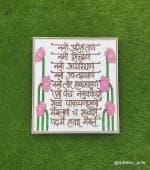 नमो अरिहंताणं
नमो सिद्धाणं
नमो आयरियाणं
नमो उवज्झायाणं
नमो लोए सव्वसाहूणं
एसो पंच नमुक्कारो
सव्व पावप्पणासणो
मंगलाणं च सव्वेसिं
पढमं हवई मंगलं